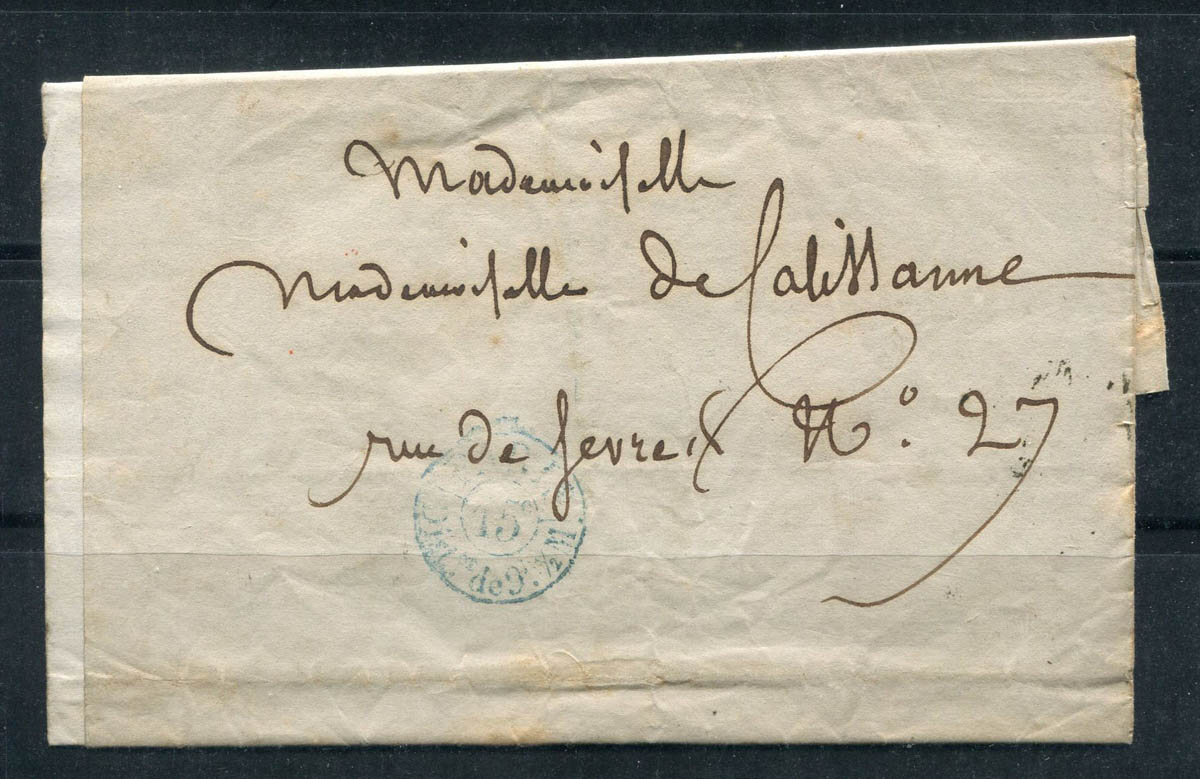 Mademoiselle
Mademoiselle de Calissanne
rue de Sevres N.º 27
15
de 9.h ½ M.